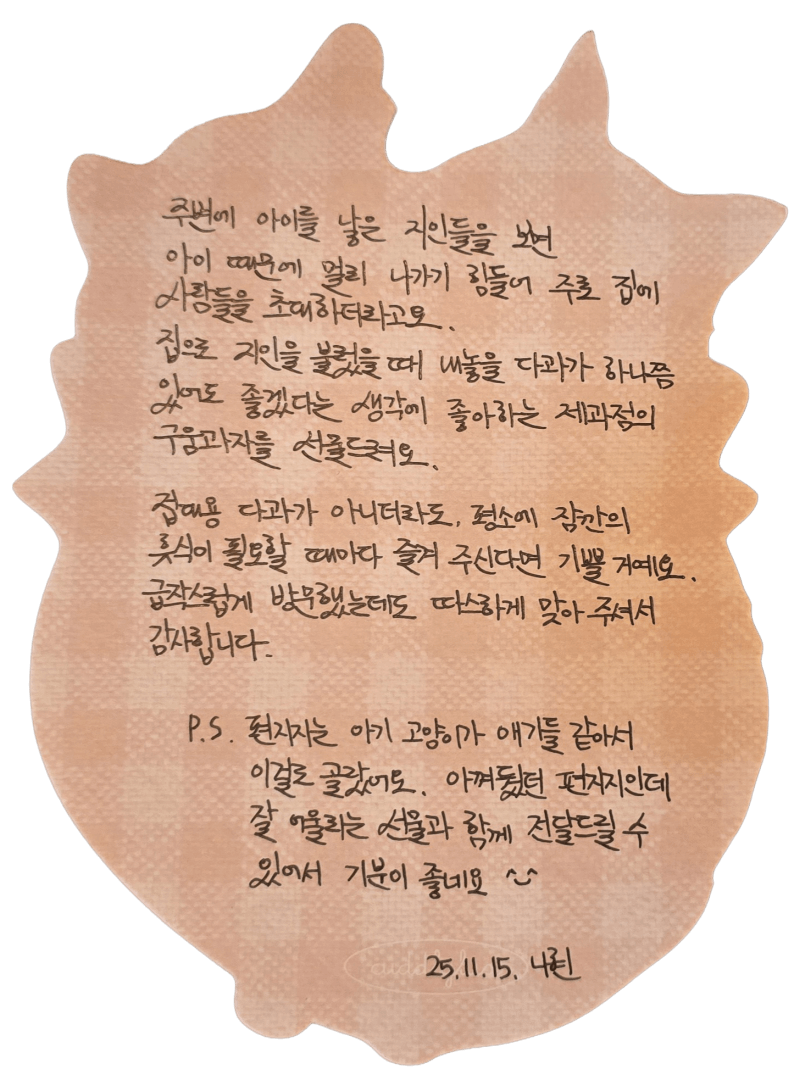 주변에 아이를 낳은 지인들을 보면
아이 때문에 멀리 나가기 힘들어 주로 집에
사람들을 초대하더라고요.
집으로 지인을 불렀을 때 내놓을 다과가 하나쯤
있어도 좋겠다는 생각에 좋아하는 제과점의
구움과자를 선물드려요.
접대용 다과가 아니더라도, 평소에 잠깐의
휴식이 필요할 때마다 즐겨 주신다면 기쁠 거예요.
급작스럽게 방문했는데도 따스하게 맞아 주셔서
감사합니다.
P.S. 편지지는 아기 고양이가 얘기들 같아서
이걸로 골랐어요. 아껴뒀던 편지지인데
잘 어울리는 선물과 함께 전달드릴 수
있어서 기분이 좋네요 ^^
25.11.15. 나린